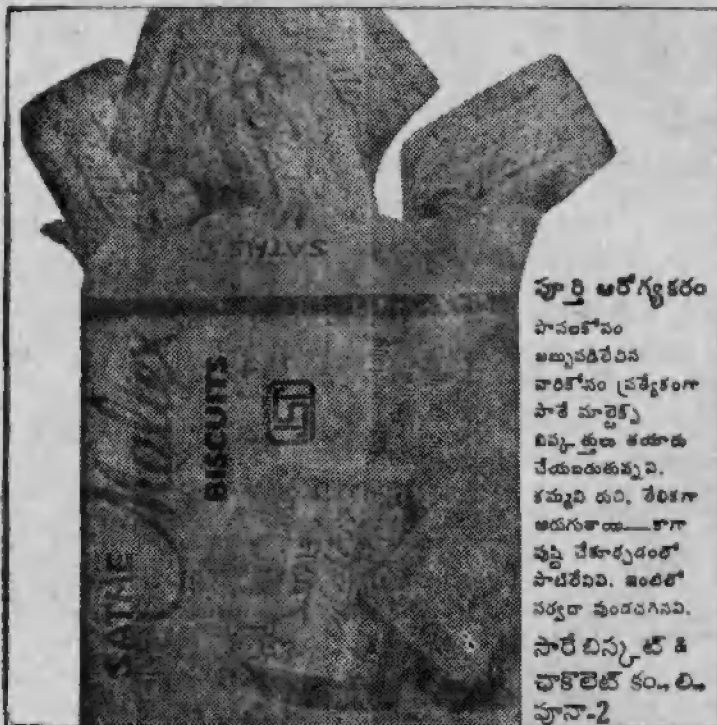 SATHE
SATHE
Maltex
BISCUITS
ISI
పూర్తి ఆరోగ్యకరం
పాపలకోసం
జబ్బుపడిలేచిన
వారికోసం ప్రత్యేకంగా
సాఠే మాల్టెక్స్
బిస్కత్తులు తయారు
చేయబడుతున్నవి.
కమ్మని రుచి, తేలికగా
అరుగుతాయి—కాగా
పుష్టి చేకూర్చడంలో
సాటిలేనివి. ఇంటిలో
సర్వదా వుండదగినవి.
సాఠే బిస్కట్ &
ఛాకొలెట్ కం., లి.,
పూనా-2